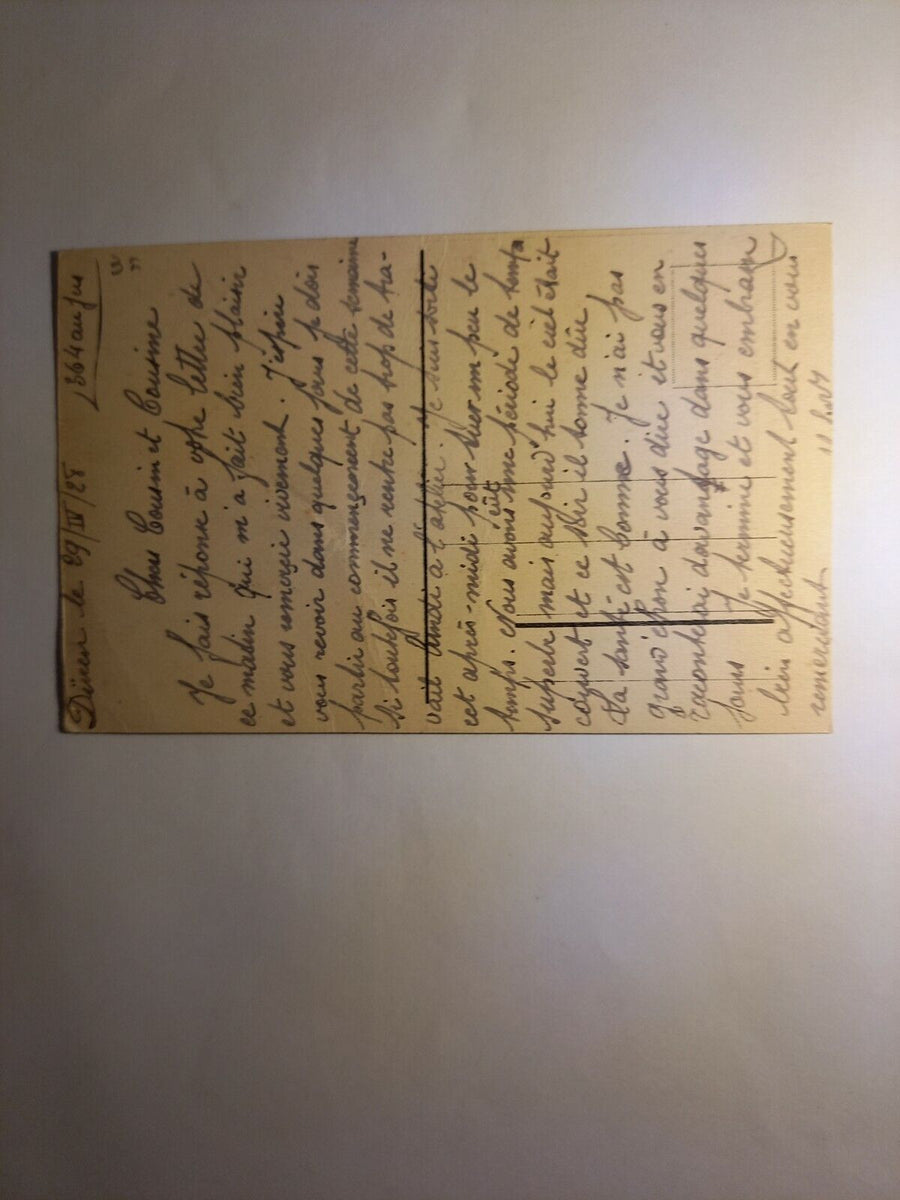 Düren le 29/IV/28 364 au jus
Chers Cousin et Cousine
Je fais réponse à votre lettre de
ce matin qui m'a fait bien plaisir
et vous remercie vivement. J'espère
vous revoir dans quelques jours je dois
partir au commencement de cette semaine
si toutefois il ne rentre pas trop de tra-
vail lundi à l'atelier. Je suis sorti
cet après-midi pour tuer un peu le
temps. Nous avons eût une période de temps
superbe mais aujourd'hui le ciel était
couvert et ce soir il tonne dûr
La santé est bonne. Je n'ai pas
grand chose à vous dire et vous en
raconterai davantage dans quelques
jours Je termine et vous embrasse
bien affectueusement tous en vous
remerciant